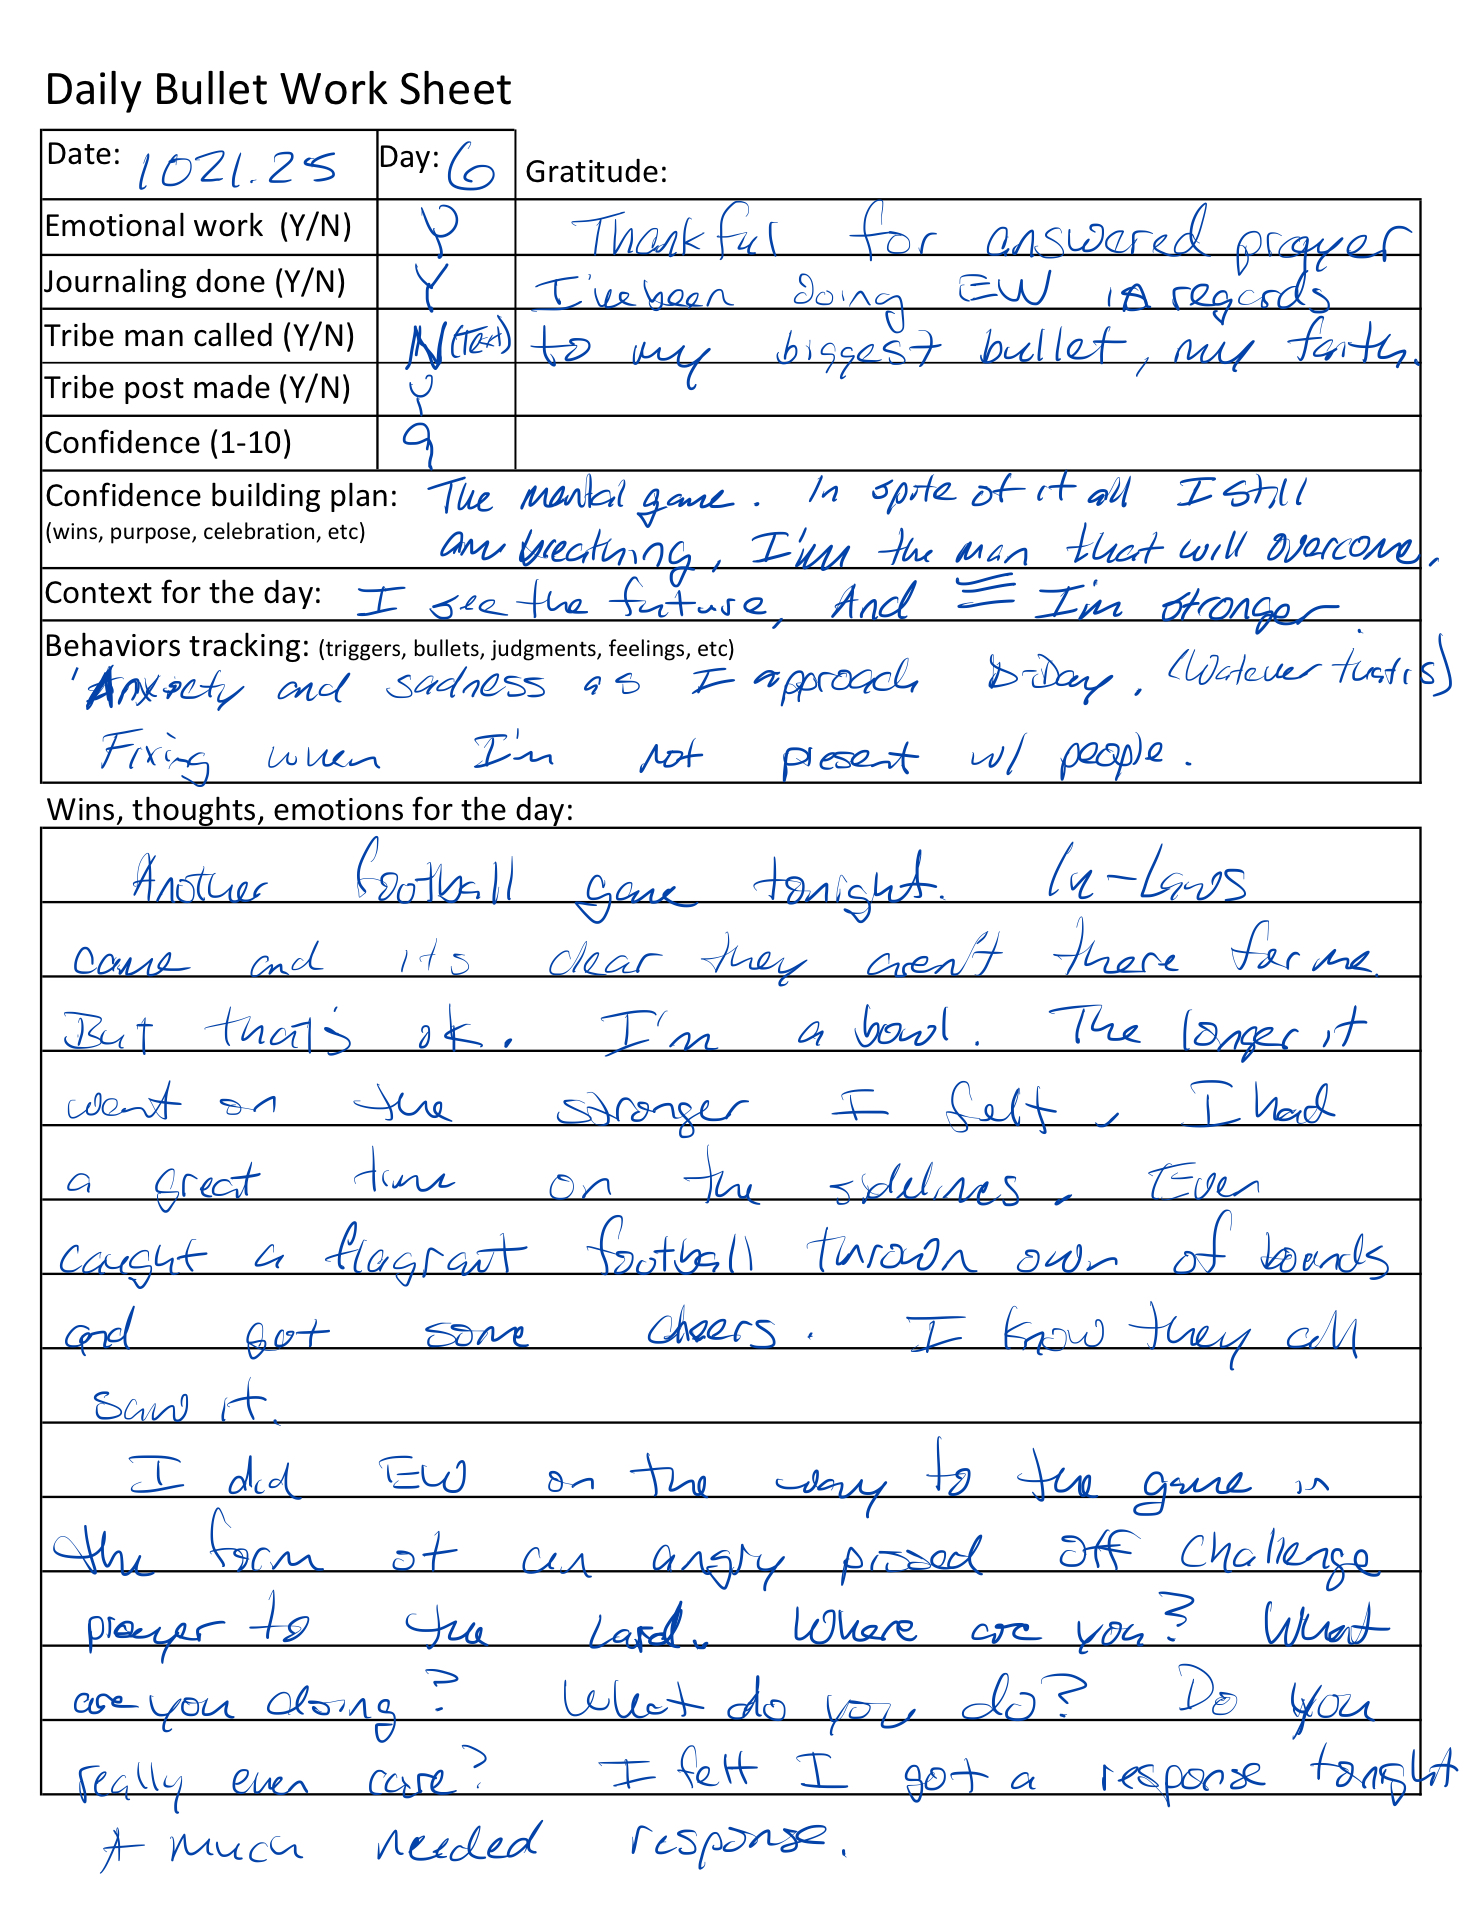 Daily Bullet Work Sheet
Date: 1021.25 Day: 6 Gratitude:
Emotional work (Y/N) Y Thankful for answered prayer
Journaling done (Y/N) Y I've been doing EW in regards
Tribe man called (Y/N) N (Text) to my biggest bullet, my faith.
Tribe post made (Y/N) Y
Confidence (1-10) 9
Confidence building plan: The mental game. In spite of it all I still
(wins, purpose, celebration, etc) am breathing, I'm the man that will overcome.
Context for the day: I see the future, And I'm stronger.
Behaviors tracking: (triggers, bullets, judgments, feelings, etc)
Anxiety and sadness as I approach D-Day. (Watever that is)
Fixing when I'm not present w/ people.
Wins, thoughts, emotions for the day:
Another football game tonight. In-Laws
came and its clear they aren't there for me.
But that's ok. I'm a bowl. The longer it
went on the stronger I felt. I had
a great time on the sidelines. Even
caught a flagrant football thrown own of bounds
and got some cheers. I know they all
saw it.
I did EW on the way to the game in
the form of an angry pissed off challenge
prayer to the Lord. Where are you? What
are you doing? What do you do? Do you
really even care? I felt I got a response tonight
A much needed response.